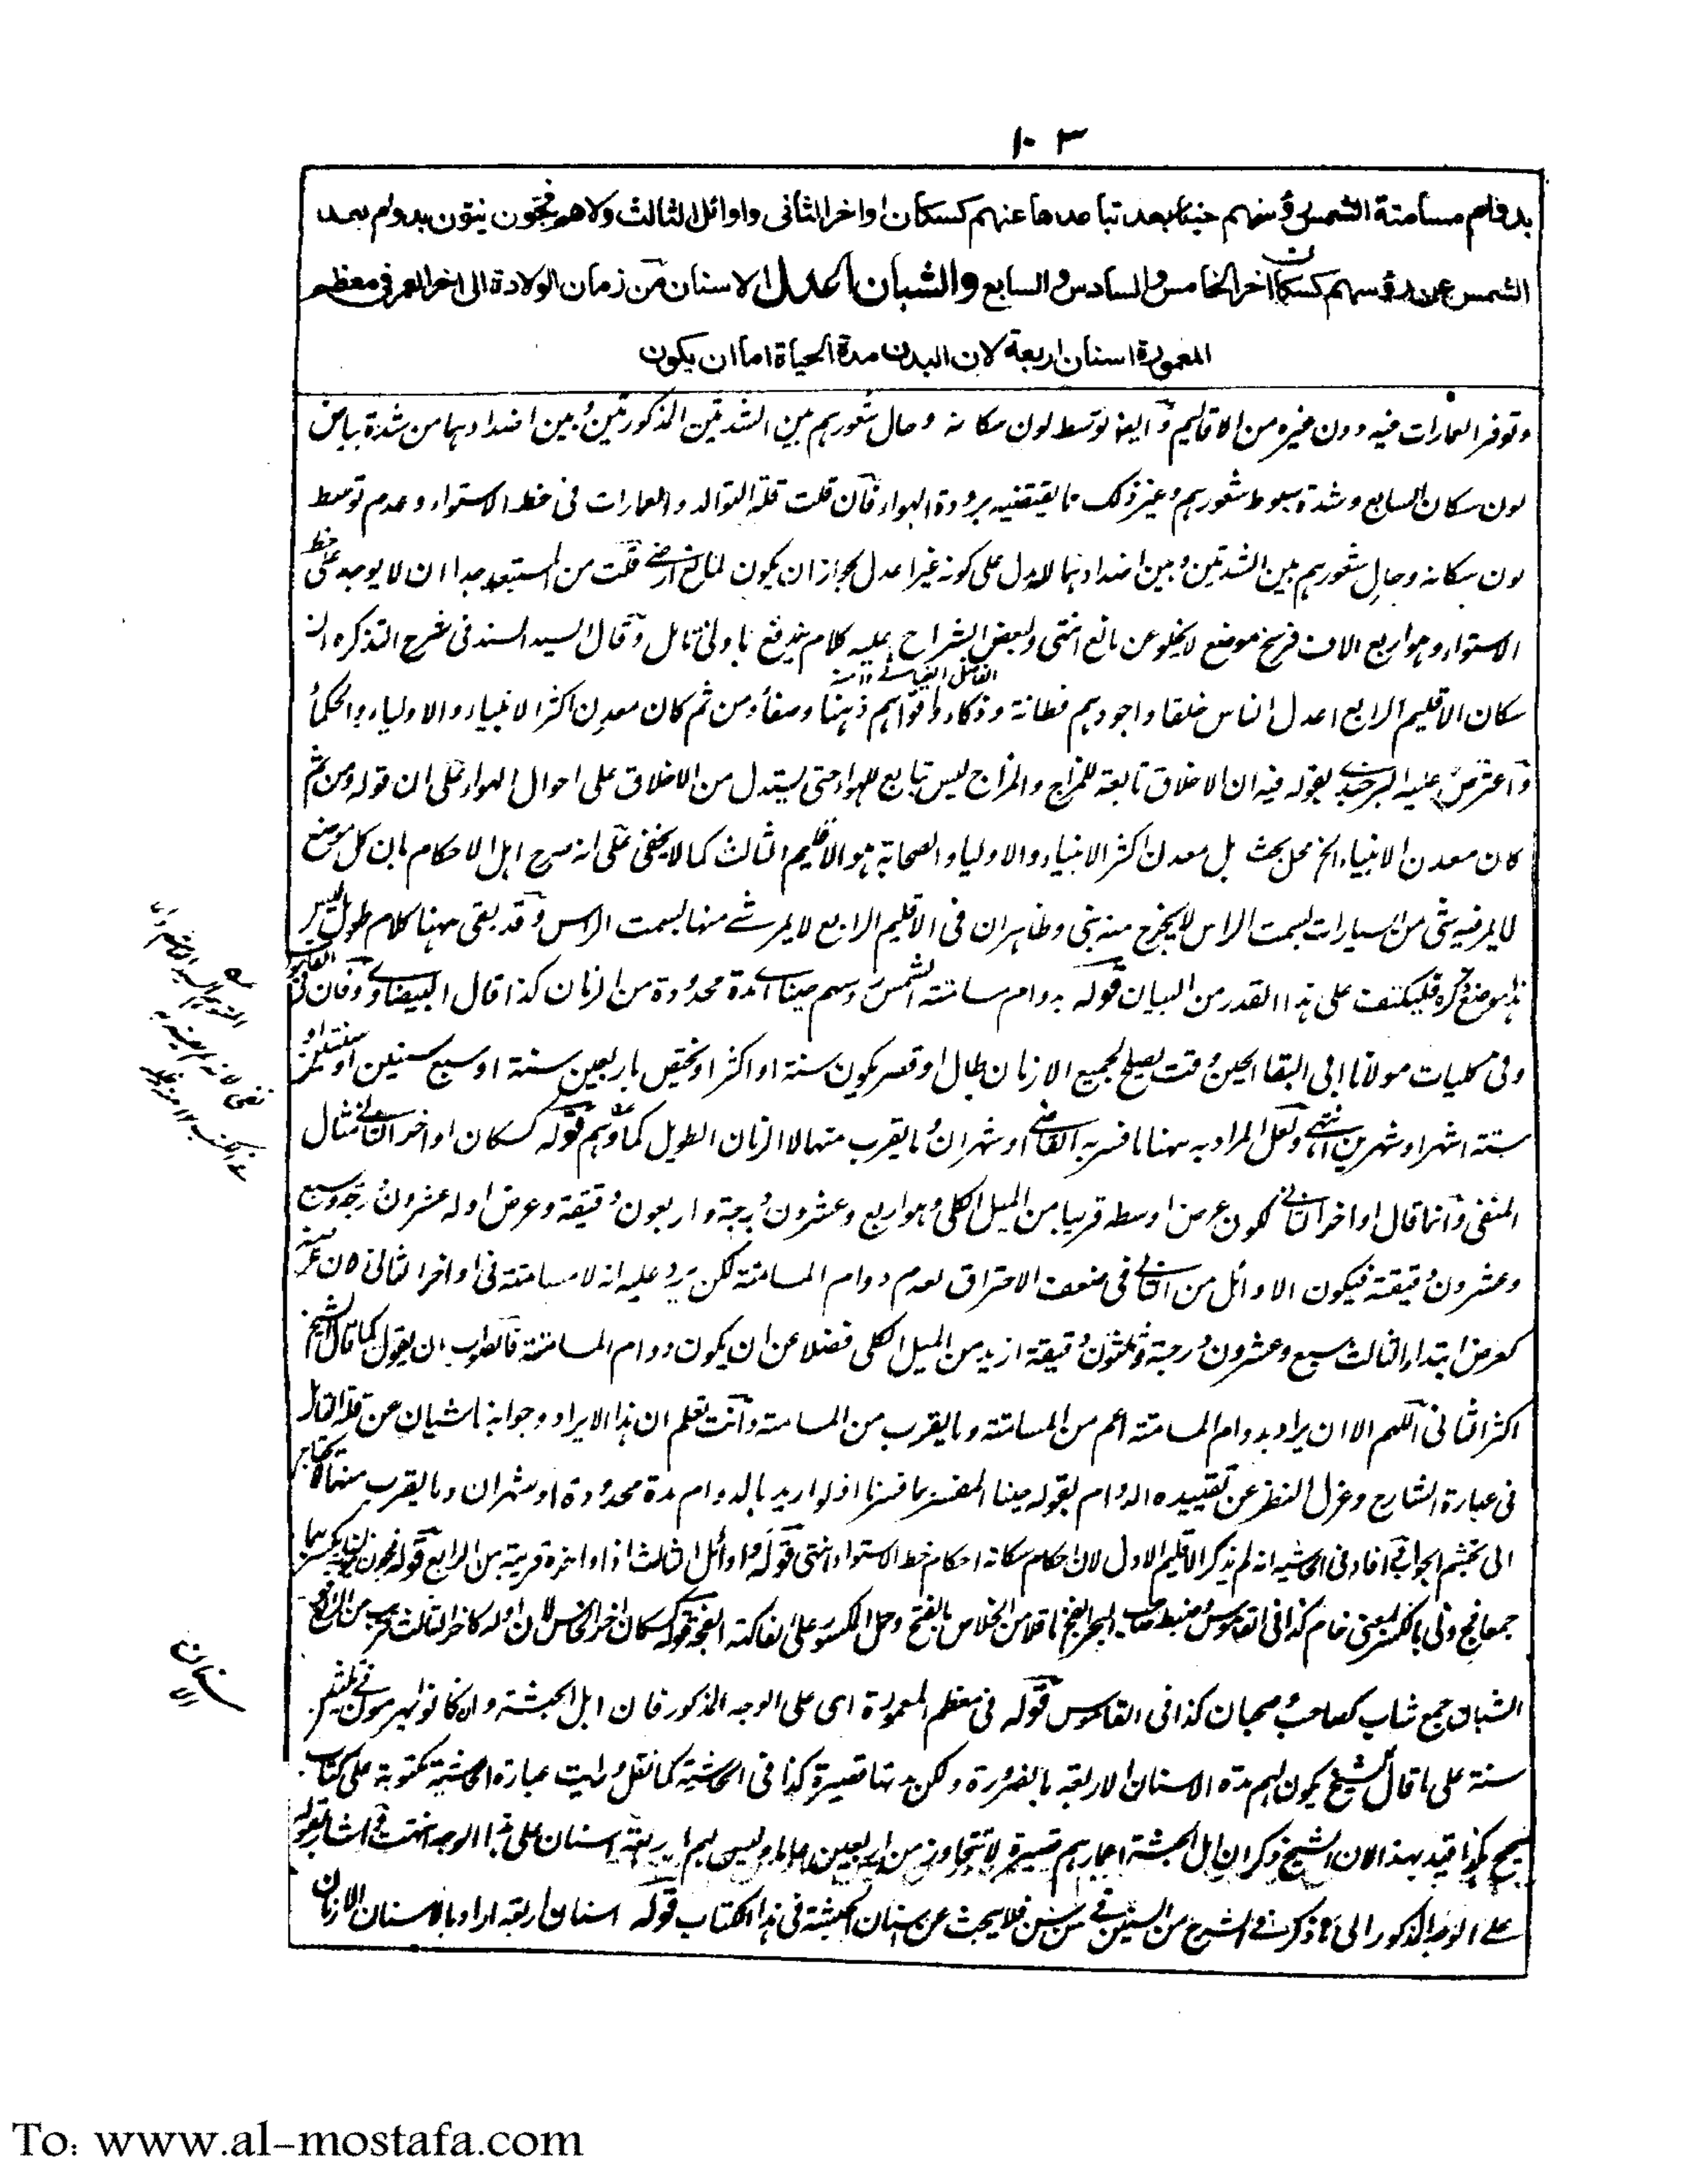 ١٠٣
بدوام مسامتة الشمس رؤسهم حينا بعد تباعدها عنهم كسكان اواخر الثانى واوائل الثالث ولا هم فجون نيون بدوام بعد
الشمس عن رؤسهم كسكان اخر الخامس والسادس والسابع والشبان اعدل الاسنان من زمان الولادة الى اخر العمر فى معظم
المعمورة اسنان اربعة لان البدن مدة الحياة اما ان يكون
وتوفر العمارات فيه دون غيره من الاقاليم وايضا توسط لون سكانه وحال شعورهم بين الشدتين المذكورتين وبين اضدادهما من شدة بياض
لون سكان السابع وشدة سبوط شعورهم وغير ذلك مما يقتضيه برودة الهواء فان قلت قلة التوالد والعمارات فى خط الاستواء وعدم توسط
لون سكانه وحال شعورهم بين الشدتين وبين اضدادهما لا يدل على كونه غير اعدل لجواز ان يكون لمانع ارضى قلت من المستبعد جدا ان لا يوجد على خط
الاستواء وهو اربع الاف فرسخ موضع لا يخلو عن مانع انتهى ولبعض الشراح عليه كلام يندفع بادنى تامل وقال السيد السند فى شرح التذكرة ان
سكان الاقليم الرابع اعدل الناس خلقا واجودهم فطانة وذكاء واقواهم ذهنا وصفاء ومن ثم كان معدن اكثر الانبياء والاولياء والحكماء
واعترض عليه البرجندى بقوله فيه ان الاخلاق تابعة للمزاج والمزاج ليس تابع للهواء حتى يستدل من الاخلاق على احوال الهواء على ان قوله ومن ثم
كان معدن الانبياء الخ محل بحث بل معدن اكثر الانبياء والاولياء والصحابة هو الاقليم الثالث كما لا يخفى على انه صرح اهل الاحكام بان كل موضع
لا يمر فيه شئ من السيارات بسمت الراس لا يخرج منه نبى وظاهر ان فى الاقليم الرابع لا يمر شئ منها بسمت الراس وقد بقى ههنا كلام طويل ليس
هذا موضع ذكره فليكتف على هذا القدر من البيان قوله بدوام مسامتة الشمس رؤسهم حينا اى مدة محدودة من الزمان كذا قال البيضاوى
وفى كليات مولانا ابى البقا الحين وقت يصلح لجميع الازمان طال او قصر يكون سنة او اكثر او يختص باربعين سنة او سبع سنين او سنتين او
ستة اشهر او شهرين انتهى ولعل المراد به ههنا ما فسر به القاضى او شهران وما يقرب منهما لا الزمان الطويل كما وهم قوله كسكان اواخر الثانى مثال
المنفى وانما قال اواخر الثانى لكون عرض اوسطه قريبا من الميل الكلى وهو اربع وعشرون درجة واربعون دقيقة وعرض اوله عشرون درجة وسبع
وعشرون دقيقة فيكون الاوائل من الثانى فى ضعف الاحتراق لعدم دوام المسامتة لكن يرد عليه انه لا مسامتة فى اواخر الثانى لان عرضه
كعرض ابتداء الثالث سبع وعشرون درجة وثلثون دقيقة ازيد من الميل الكلى فضلا عن ان يكون دوام المسامتة فالصواب ان يقول كما قال الشيخ
اكثر الثانى اللهم الا ان يراد بدوام المسامتة اعم من المسامتة وما يقرب من المسامتة وانت تعلم ان هذا الايراد وجوابه ناشيان عن قلة التامل
فى عبارة الشارح وعزل النظر عن تقييده الدوام بقوله حينا المفسر بما فسرنا اذ لو اريد بالدوام مدة محدودة او شهران وما يقرب منهما لا يحتاج
الى تجشم الجواب افاد فى الحاشية انه لم يذكر الاقليم الاول لان احكام سكانه احكام خط الاستواء انتهى قوله واوائل الثالث اذ اواخره قريبة من الرابع قوله فجون
جمعا فج ونى بالكسر بمعنى خام كذا فى القاموس
الشبان جمع شاب كصاحب وصحبان كذا فى القاموس قوله فى معظم المعمورة اى على الوجه المذكور فان اهل الحبشة وان كانوا يهرمون فى ثلثين
سنة على ما قال الشيخ يكون لهم مدة الاسنان الاربعة بالضرورة ولكن مدتها قصيرة كذا فى الحاشية كما نقل ورايت عبارة الحاشية مكتوبة على كتاب
صحيح هكذا قيد بهذا لان الشيخ ذكر ان اهل الحبشة اعمارهم قصيرة لا تتجاوز من اربعين عاما وليس لهم اربعة اسنان على هذا الوجه انتهت اشار بقوله
على الوجه المذكور الى ما ذكر فى الشرح من السنين فى سن سن فلا يبحث عن اسنان الحبشة فى هذا الكتاب قوله اسنان اربعة اراد بالاسنان الازمان
To: www.al-mostafa.com